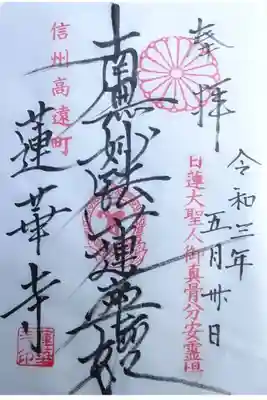 奉拝
令和三年
五月卅日
日蓮大聖人御真骨分安霊場
南無妙法蓮華経
信州高遠町
蓮華寺